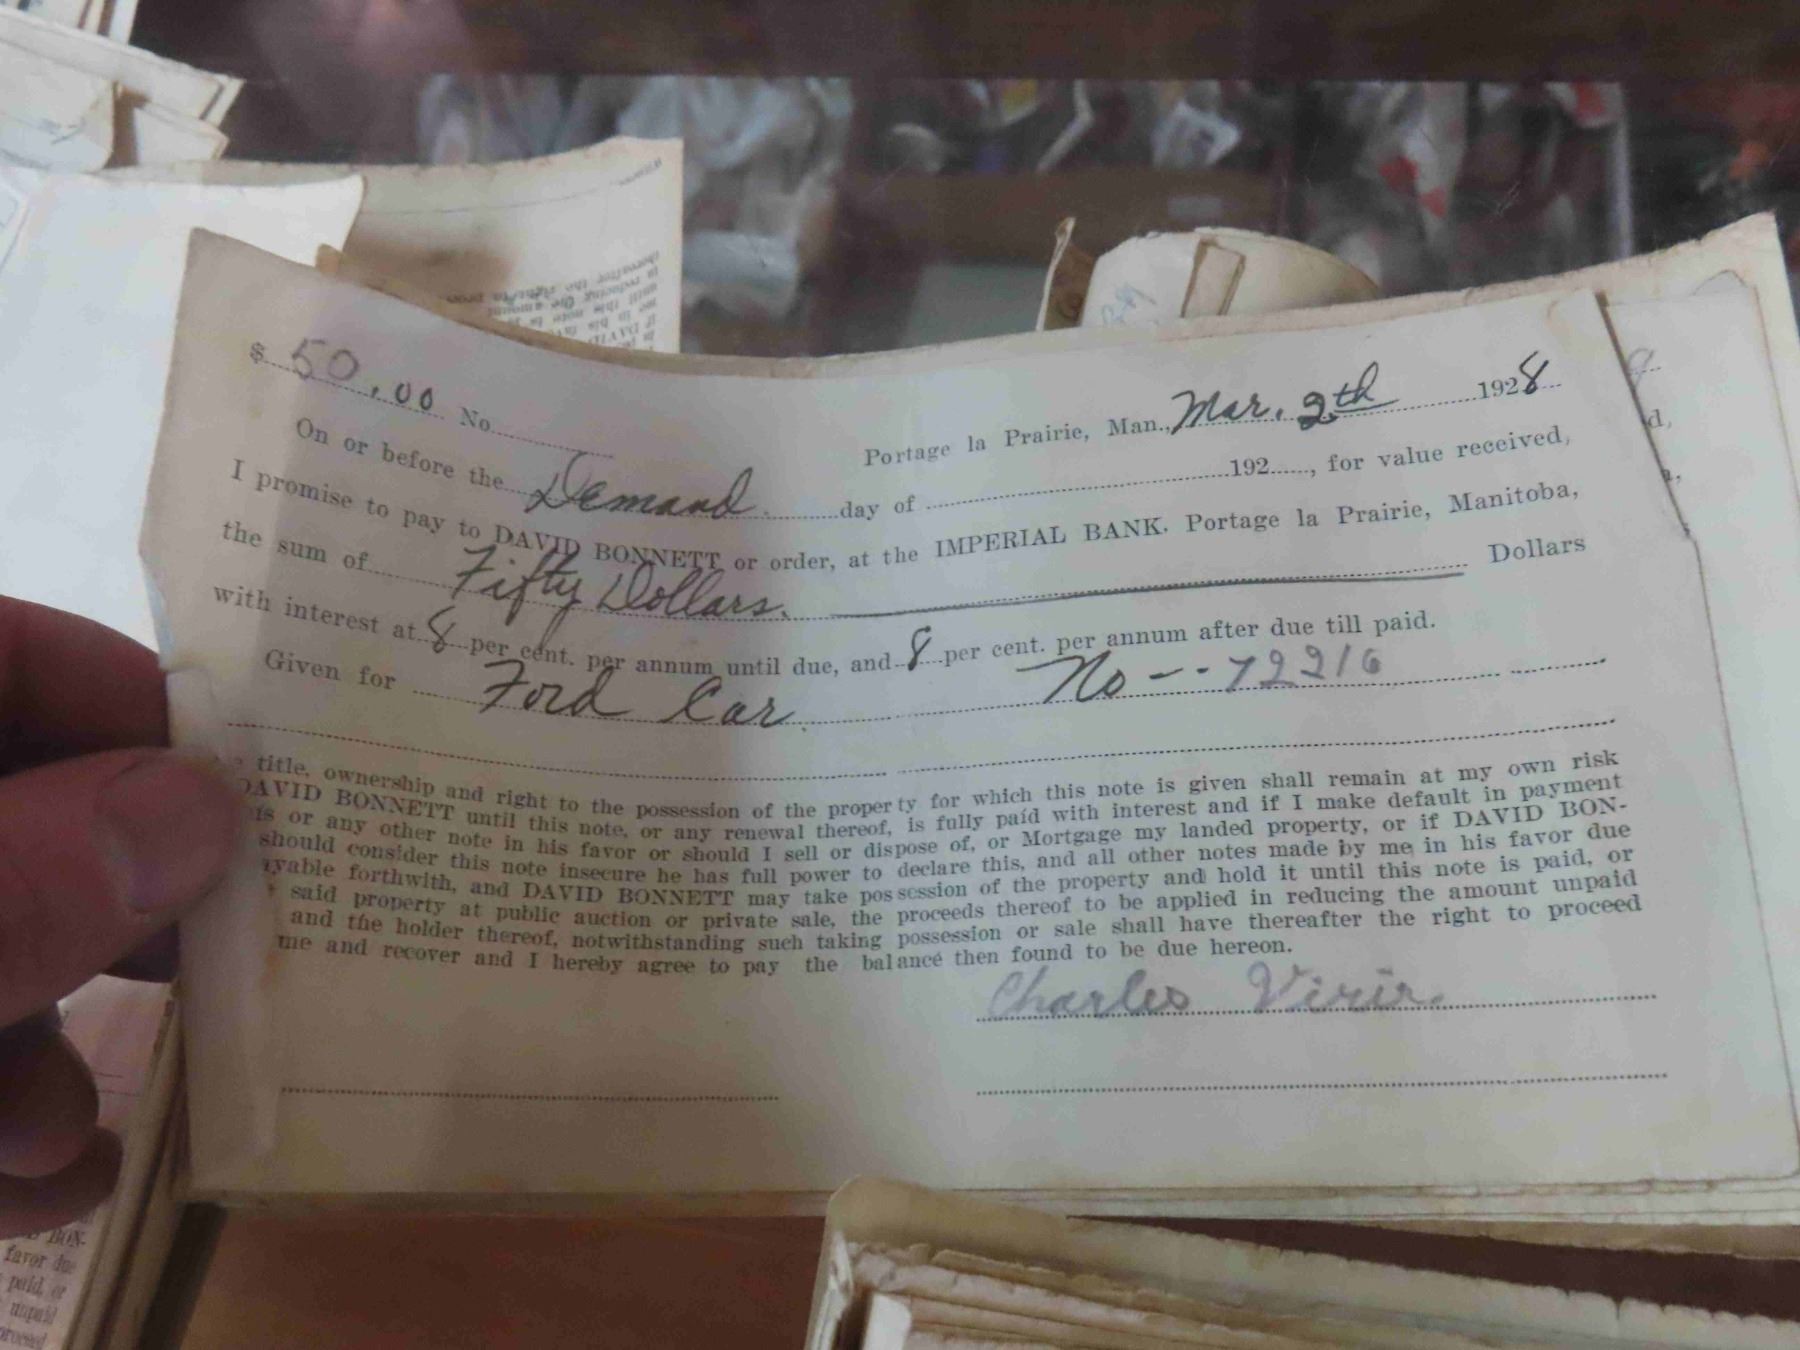 $ 50.00 No.
Portage la Prairie, Man., Mar. 2th 1928
On or before the Demand. day of 192....., for value received,
I promise to pay to DAVID BONNETT or order, at the IMPERIAL BANK. Portage la Prairie, Manitoba,
the sum of Fifty Dollars. Dollars
with interest at 8 per cent. per annum until due, and 8 per cent. per annum after due till paid.
Given for Ford Car. No -- 72216
title, ownership and right to the possession of the property for which this note is given shall remain at my own risk
DAVID BONNETT until this note, or any renewal thereof, is fully paid with interest and if I make default in payment
or any other note in his favor or should I sell or dispose of, or Mortgage my landed property, or if DAVID BON-
should consider this note insecure he has full power to declare this, and all other notes made by me in his favor due
forthwith, and DAVID BONNETT may take possession of the property and hold it until this note is paid, or
said property at public auction or private sale, the proceeds thereof to be applied in reducing the amount unpaid
and the holder thereof, notwithstanding such taking possession or sale shall have thereafter the right to proceed
me and recover and I hereby agree to pay the balance then found to be due hereon.
Charles
BON-
favor due
paid, or
unpaid
proceed